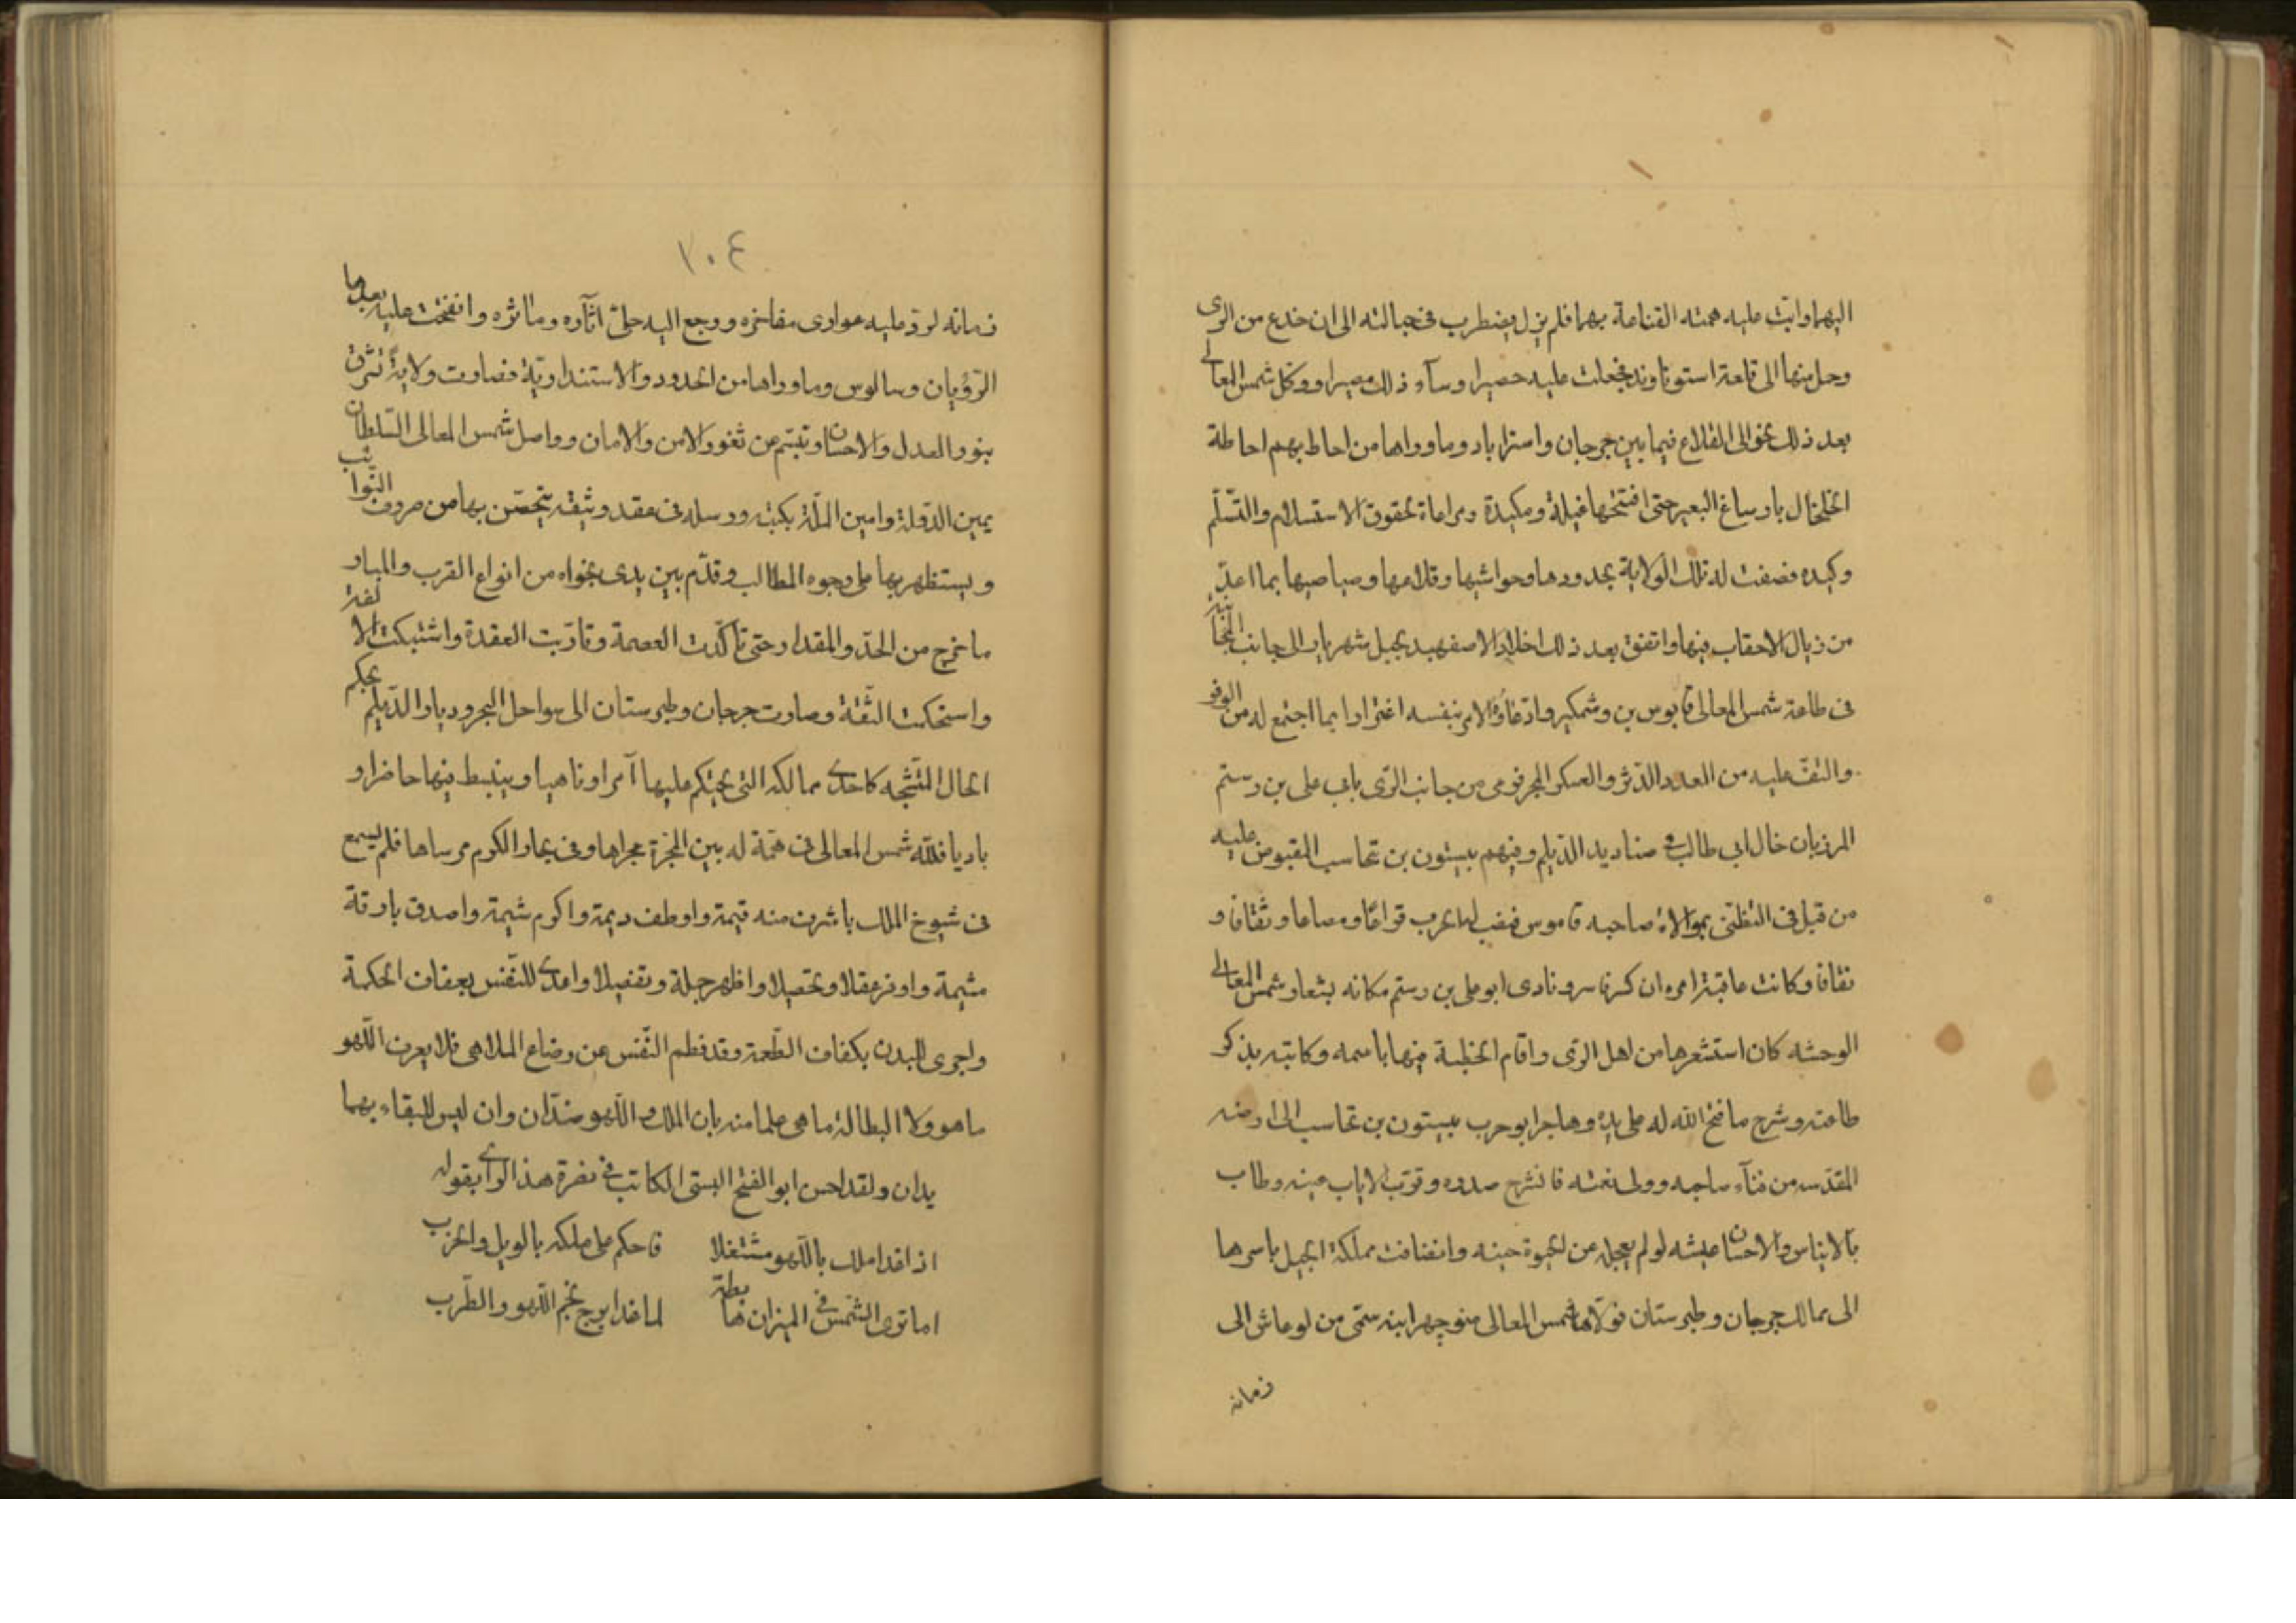 اليهما وابت عليه همته القناعة بهما فلم يزل يضطرب في حبالته الى ان خدع من الرى
وحل منها الى قلعة استوناوند فجعلت عليه حصيرا وسآء ذلك مصيرا ووكل شمس المعالى
بعد ذلك بحوالى القلاع فيما بين جرجان واستراباد وماوراها من احاط بهم احاطة
الخلخال بارساغ البعير حتى افتتحها غيلة ومكيدة ومراعاة لحقوق الاستسلام والتسلّم
وكيده فصفت له تلك الولاية بحدودها وحواشيها وقلاعها وصياصيها بما اعدّ
من ذبال الاحقاب فيها واتفق بعد ذلك اخلاد الاصفهبد بجبل شهريار الى جانب
فى طاعة شمس المعالى قابوس بن وشمكير وادّعاؤه الامر بنفسه اغترارا بما اجتمع له من الوفر
والتفّ عليه من العدد الدثر والعسكر المجر فرمى من جانب الرّى بابى على بن رستم
المرزبان خال ابى طالب فى صناديد الدّيلم وفيهم بيستون بن تجاسب المقبوض عليه
من قبل فى التظنّى بموالاة صاحبه قاموس فنصب لها الحرب قراعًا ومصاعا وثقافا و
نقافا وكانت عاقبة امره ان كسر فاسر ونادى ابو على بن رستم مكانه بشعار شمس المعالى
الوحشه كان استشعرها من اهل الرّى واقام الخطبة فيها باسمه وكاتبه يذكر
طاعته وشرح ما فتح الله له على يده وهاجر ابو حرب بيستون بن تجاسب الى ارضه
المقدّسه من فنآء صاحبه وولى نعمته فانشرح صدره وقرّت لاياب عينه وطاب
بالايناس والاحسان عيشه لو لم يعجله عن الحيوة حينه وانضافت مملكة الجيل باسرها
الى ممالك جرجان وطبرستان فولّاها شمس المعالى منوچهر ابنه ستى من لو عاش الى
زمانه
١٠٤
زمانه لردّ عليه عوارى مفاخره ورجع اليه حلىّ اثآره وماثره وانفتحت عليه بعدها
الرّؤيان وسالوس وماوراها من الحدود والاستنداريّة فصارت ولايةً تشرق
بنور العدل والاحسان وتبتسم عن ثغور الامن والامان وواصل شمس المعالى السّلطان
يمين الدّولة وامين الملّة بكتبه ورسله فى عقد وثيقة يتحصّن بها من صروف النّوائب
ويستظهر بها على وجوه المطالب وقدّم بين يدى نجواه من انواع القرب والمبار
ما خرج من الحدّ والمقدار حتى تاكّدت العصمة وتاربت العقدة واشتبكت الالفة
واستحكمت الثّقة وصارت جرجان وطبرستان الى سواحل البحر وديار الدّيلم بحكم
الحال المتّشجه كاحدى ممالكه التى يحتكم عليها آمرا وناهيا وينبسط فيها حاضرا و
باديا فللّه شمس المعالى فى همّة له بين المجرّة مجراها وفى بحار الكرم مرساها فلم يسمع
فى شيوخ الملك باشرف منه قيمة واوطف ديمة واكرم شيمة واصدق بارقة
مشيمة واوفر عقلا وتحصيلا واظهر جملة وتفصيلا واغدى للنّفس بعفاف الحكمة
واجرى للبدن بكفاف الطّعمة وقد فطم النّفس عن رضاع الملاهى فلا يعرف اللّهو
ما هو ولا البطالة ما هى علما منه بان الملك واللّهو ضدّان وان ليس للبقاء بهما
يدان ولقد احسن ابو الفتح البستى الكاتب فى نصرة هذا الراى بقوله
اذا غدا ملك باللّهو مشتغلا فاحكم على ملكه بالويل والحرب
اما ترى الشّمس فى الميزان هابطة لما غدا برج نجم اللّهو والطّرب